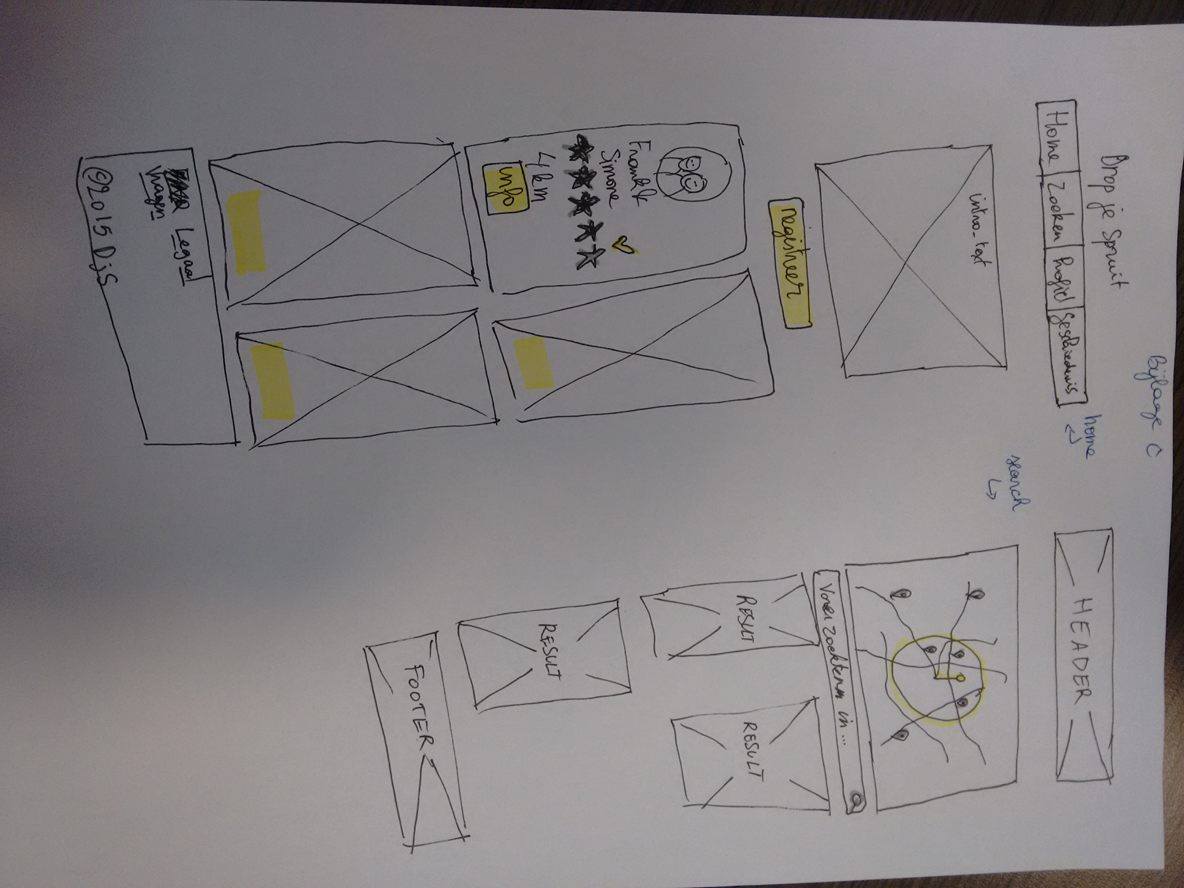 Bijlage C
home
Drop je Spruit
Home Zoeken Profiel Geschiedenis
intro-text
registreer
Frank &
Simone
4 km
info
vragen Legaal
©2015 DjS
search
HEADER
Voer zoekterm in...
RESULT
RESULT
RESULT
FOOTER